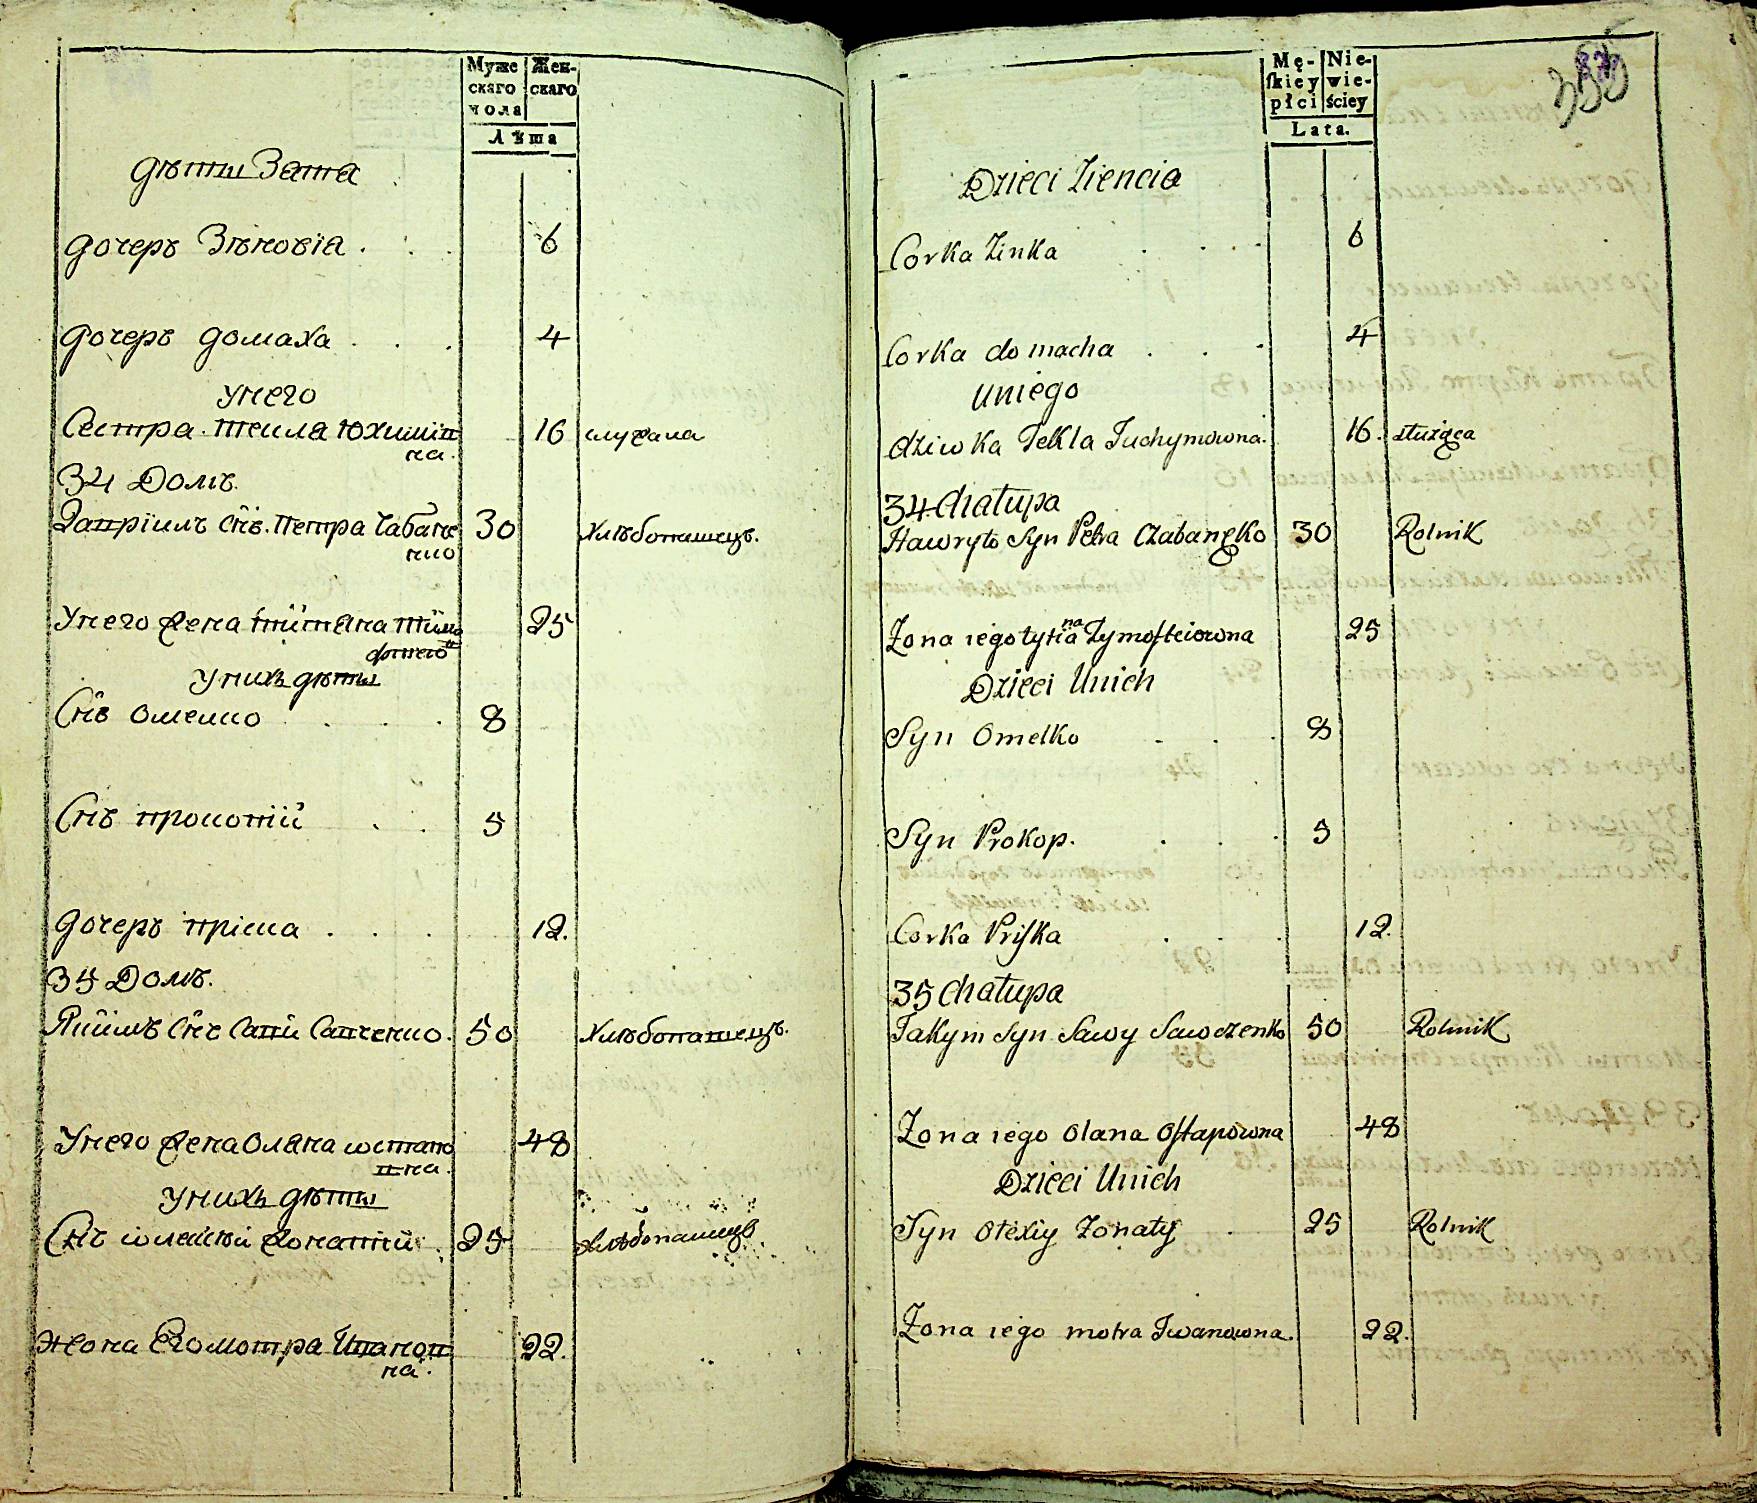 Муже Жен-
скаго скаго
пола
Лѣта
дѣти Зятя
дочерь Зѣновія . . . 6
дочерь домаха . . . 4
унего
Сестра текля Юхимів 16 служаща
на.
34 Домъ.
Гаврііилъ Снъ. Петра Чабане 30 Хлѣбопашецъ.
нко
Унего жена тітяна тімо 25
фіева
Унихъ дѣти
Снъ Омелко . . . 8
Снъ прокопій . . 5
дочерь пріска . . . 12.
35 Домъ.
Якимъ Снъ Савы Савченко . 50 Хлѣбопашецъ.
Унего жена Оляна Wстапо 48
вна.
Унихъ дѣти
Снъ Wлексѣй жонатій . 25 хлѣбопашецъ.
жона Его мотра Иванов 22.
на.
Mę- Nie-
skiey wie-
płci ściey
Lata.
335
Dzieci Ziencia
Corka Zinka . . . . 6
Corka domacha . . . 4
uniego
dziwka Tekla Juchymowna. 16. służąca
34 Chałupa
Hawryło Syn Petra Czabanęko 30 Rolnik
Zona iego tytiana Tymofteiowna 25
Dzieci Unich
Syn Omelko . . . 8
Syn Prokop. . . . 5
Corka Priska . . . 12.
35 Chałupa
Jakym Syn Sawy Sawczenko 50 Rolnik
Zona iego Olana Ostapowna 48
Dzieci Unich
Syn Ołexiy Zonaty . 25 Rolnik
Zona iego motra Iwanowna. 22.